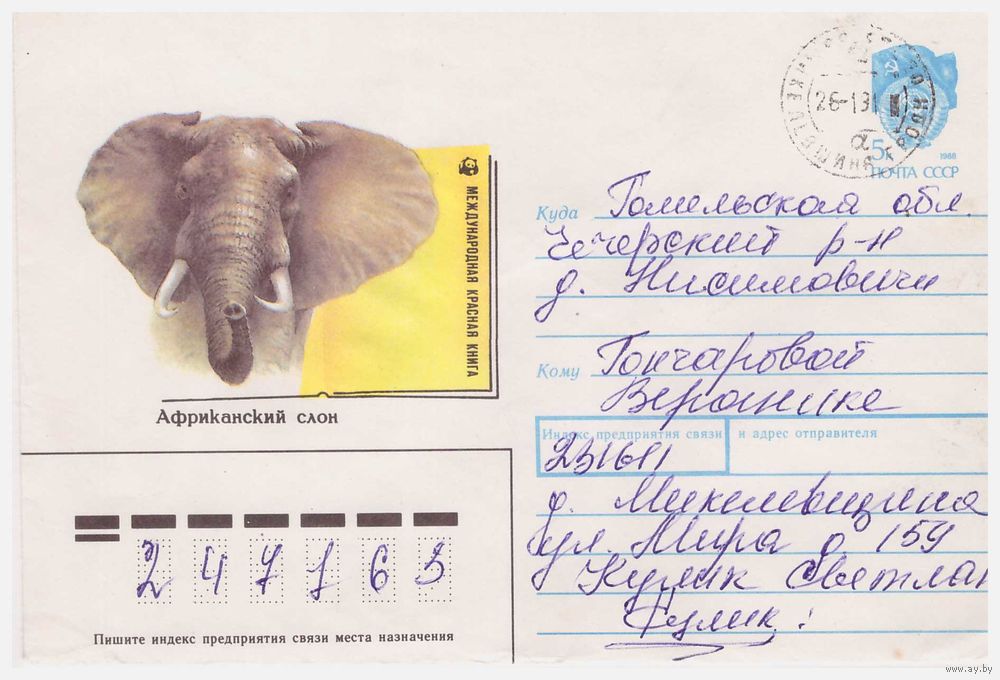 26-1 91
5к
1988
ПОЧТА СССР
МЕЖДУНАРОДНАЯ КРАСНАЯ КНИГА
Африканский слон
Куда Гомельской обл.
Чечерский р-н
д. Нисимовичи
Кому Гончаровой
Веронике
Индекс предприятия связи и адрес отправителя
231611
д. Микелевщина
ул. Мира д 159
Кулик Светлан
247163
Пишите индекс предприятия связи места назначения
www.ay.by